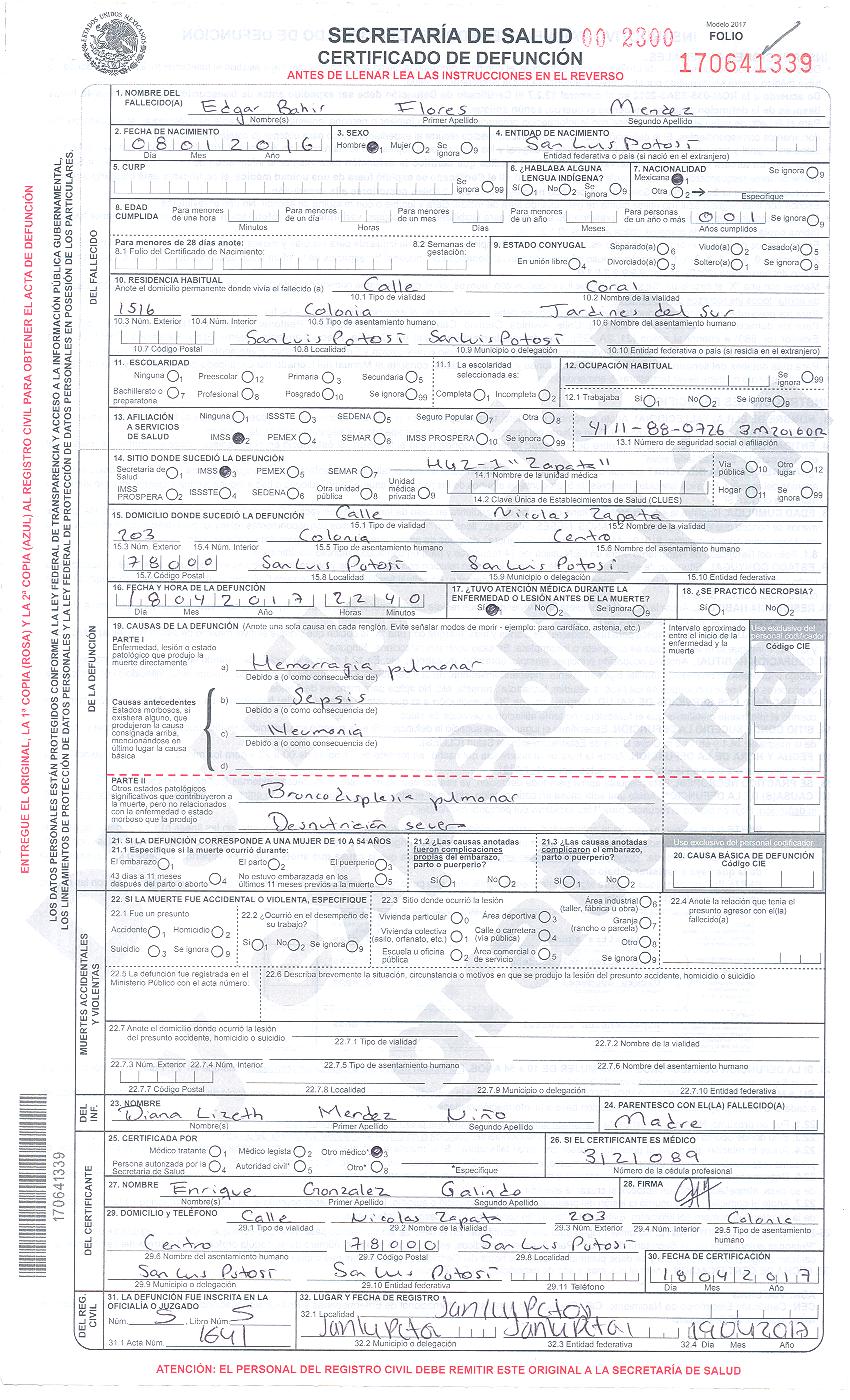 ESTADOS UNIDOS MEXICANOS
SECRETARÍA DE SALUD 00 2300
Modelo 2017
FOLIO
CERTIFICADO DE DEFUNCIÓN
170641339
ANTES DE LLENAR LEA LAS INSTRUCCIONES EN EL REVERSO
ENTREGUE EL ORIGINAL, LA 1ª COPIA (ROSA) Y LA 2ª COPIA (AZUL) AL REGISTRO CIVIL PARA OBTENER EL ACTA DE DEFUNCIÓN
LOS DATOS PERSONALES ESTÁN PROTEGIDOS CONFORME A LA LEY FEDERAL DE TRANSPARENCIA Y ACCESO A LA INFORMACIÓN PÚBLICA GUBERNAMENTAL,
LOS LINEAMIENTOS DE PROTECCIÓN DE DATOS PERSONALES Y LA LEY FEDERAL DE PROTECCIÓN DE DATOS PERSONALES EN POSESIÓN DE LOS PARTICULARES.
170641339
DEL FALLECIDO
1. NOMBRE DEL FALLECIDO(A) Edgar Bahir Flores Mendez
Nombre(s) Primer Apellido Segundo Apellido
2. FECHA DE NACIMIENTO 3. SEXO 4. ENTIDAD DE NACIMIENTO San Luis Potosí
08012016 Hombre 1 Mujer 2 Se ignora 9
Día Mes Año Entidad federativa o país (si nació en el extranjero)
5. CURP Se ignora 99 6. ¿HABLABA ALGUNA LENGUA INDÍGENA? Sí 1 No 2 Se ignora 9 7. NACIONALIDAD Mexicana 1 Otra 2 Especifique Se ignora 9
8. EDAD CUMPLIDA Para menores de una hora Minutos Para menores de un día Horas Para menores de un mes Días Para menores de un año Meses Para personas de un año o más 001 Años cumplidos Se ignora 9
Para menores de 28 días anote: 8.1 Folio del Certificado de Nacimiento: 8.2 Semanas de gestación:
9. ESTADO CONYUGAL Separado(a) 6 Viudo(a) 2 Casado(a) 5
En unión libre 4 Divorciado(a) 3 Soltero(a) 1 Se ignora 9
10. RESIDENCIA HABITUAL
Anote el domicilio permanente donde vivía el fallecido (a) Calle Coral
10.1 Tipo de vialidad 10.2 Nombre de la vialidad
1516 Colonia Jardines del Sur
10.3 Núm. Exterior 10.4 Núm. Interior 10.5 Tipo de asentamiento humano 10.6 Nombre del asentamiento humano
San Luis Potosí San Luis Potosí
10.7 Código Postal 10.8 Localidad 10.9 Municipio o delegación 10.10 Entidad federativa o país (si residía en el extranjero)
11. ESCOLARIDAD 11.1 La escolaridad seleccionada es: 12. OCUPACIÓN HABITUAL Se ignora 99
Ninguna 1 Preescolar 12 Primaria 3 Secundaria 5
Bachillerato o preparatoria 7 Profesional 8 Posgrado 10 Se ignora 99 Completa 1 Incompleta 2 12.1 Trabajaba Sí 1 No 2 Se ignora 9
13. AFILIACIÓN A SERVICIOS DE SALUD Ninguna 1 ISSSTE 3 SEDENA 5 Seguro Popular 7 Otra 8
IMSS 2 PEMEX 4 SEMAR 6 IMSS PROSPERA 10 Se ignora 99
4111-88-0726 3M2016OR
13.1 Número de seguridad social o afiliación
DE LA DEFUNCIÓN
14. SITIO DONDE SUCEDIÓ LA DEFUNCIÓN HGZ-1 "Zapata"
Secretaría de Salud 1 IMSS 3 PEMEX 5 SEMAR 7 14.1 Nombre de la unidad médica Vía pública 10 Otro lugar 12
IMSS PROSPERA 2 ISSSTE 4 SEDENA 6 Otra unidad pública 8 Unidad médica privada 9 14.2 Clave Única de Establecimientos de Salud (CLUES) Hogar 11 Se ignora 99
15. DOMICILIO DONDE SUCEDIÓ LA DEFUNCIÓN Calle Nicolas Zapata
15.1 Tipo de vialidad 15.2 Nombre de la vialidad
203 Colonia Centro
15.3 Núm. Exterior 15.4 Núm. Interior 15.5 Tipo de asentamiento humano 15.6 Nombre del asentamiento humano
78000 San Luis Potosí San Luis Potosí
15.7 Código Postal 15.8 Localidad 15.9 Municipio o delegación 15.10 Entidad federativa
16. FECHA Y HORA DE LA DEFUNCIÓN 17. ¿TUVO ATENCIÓN MÉDICA DURANTE LA ENFERMEDAD O LESIÓN ANTES DE LA MUERTE? 18. ¿SE PRACTICÓ NECROPSIA?
18042017 2240 Sí 1 No 2 Se ignora 9 Sí 1 No 2
Día Mes Año Horas Minutos
19. CAUSAS DE LA DEFUNCIÓN (Anote una sola causa en cada renglón. Evite señalar modos de morir - ejemplo: paro cardíaco, astenia, etc.)
Intervalo aproximado entre el inicio de la enfermedad y la muerte
Uso exclusivo del personal codificador
Código CIE
PARTE I
Enfermedad, lesión o estado patológico que produjo la muerte directamente a) Hemorragia pulmonar
Debido a (o como consecuencia de)
Causas antecedentes
Estados morbosos, si existiera alguno, que produjeron la causa consignada arriba, mencionándose en último lugar la causa básica
b) Sepsis
Debido a (o como consecuencia de)
c) Neumonia
Debido a (o como consecuencia de)
d)
PARTE II
Otros estados patológicos significativos que contribuyeron a la muerte, pero no relacionados con la enfermedad o estado morboso que la produjo
Broncodisplesia pulmonar
Desnutrición severa
21. SI LA DEFUNCIÓN CORRESPONDE A UNA MUJER DE 10 A 54 AÑOS
21.1 Especifique si la muerte ocurrió durante:
El embarazo 1 El parto 2 El puerperio 3
43 días a 11 meses después del parto o aborto 4 No estuvo embarazada en los últimos 11 meses previos a la muerte 5
21.2 ¿Las causas anotadas fueron complicaciones propias del embarazo, parto o puerperio? Sí 1 No 2
21.3 ¿Las causas anotadas complicaron el embarazo, parto o puerperio? Sí 1 No 2
Uso exclusivo del personal codificador
20. CAUSA BÁSICA DE DEFUNCIÓN
Código CIE
MUERTES ACCIDENTALES Y VIOLENTAS
22. SI LA MUERTE FUE ACCIDENTAL O VIOLENTA, ESPECIFIQUE
22.1 Fue un presunto
Accidente 1 Homicidio 2
Suicidio 3 Se ignora 9
22.2 ¿Ocurrió en el desempeño de su trabajo? Sí 1 No 2 Se ignora 9
22.3 Sitio donde ocurrió la lesión
Vivienda particular 0 Área deportiva 3 Área industrial (taller, fábrica u obra) 6
Vivienda colectiva (asilo, orfanato, etc.) 1 Calle o carretera (vía pública) 4 Granja (rancho o parcela) 7
Escuela u oficina pública 2 Área comercial o de servicio 5 Otro 8 Se ignora 9
22.4 Anote la relación que tenía el presunto agresor con el(la) fallecido(a)
22.5 La defunción fue registrada en el Ministerio Público con el acta número:
22.6 Describa brevemente la situación, circunstancia o motivos en que se produjo la lesión del presunto accidente, homicidio o suicidio
22.7 Anote el domicilio donde ocurrió la lesión del presunto accidente, homicidio o suicidio
22.7.1 Tipo de vialidad 22.7.2 Nombre de la vialidad
22.7.3 Núm. Exterior 22.7.4 Núm. Interior 22.7.5 Tipo de asentamiento humano 22.7.6 Nombre del asentamiento humano
22.7.7 Código Postal 22.7.8 Localidad 22.7.9 Municipio o delegación 22.7.10 Entidad federativa
DEL INF.
23. NOMBRE Diana Lizeth Mendez Niño
Nombre(s) Primer Apellido Segundo Apellido
24. PARENTESCO CON EL(LA) FALLECIDO(A)
Madre
DEL CERTIFICANTE
25. CERTIFICADA POR
Médico tratante 1 Médico legista 2 Otro médico* 3
Persona autorizada por la Secretaría de Salud 4 Autoridad civil* 5 Otro* 8 *Especifique
26. SI EL CERTIFICANTE ES MÉDICO
3121089
Número de la cédula profesional
27. NOMBRE Enrique Gonzalez Galindo 28. FIRMA
Nombre(s) Primer Apellido Segundo Apellido
29. DOMICILIO Y TELÉFONO Calle Nicolas Zapata 203 Colonia
29.1 Tipo de vialidad 29.2 Nombre de la vialidad 29.3 Núm. Exterior 29.4 Núm. Interior 29.5 Tipo de asentamiento humano
Centro 78000 San Luis Potosí
29.6 Nombre del asentamiento humano 29.7 Código Postal 29.8 Localidad
San Luis Potosí San Luis Potosí
29.9 Municipio o delegación 29.10 Entidad federativa 29.11 Teléfono
30. FECHA DE CERTIFICACIÓN
18042017
Día Mes Año
DEL REG. CIVIL
31. LA DEFUNCIÓN FUE INSCRITA EN LA OFICIALÍA O JUZGADO
Núm. 5 Libro Núm. 5
31.1 Acta Núm. 1641
32. LUGAR Y FECHA DE REGISTRO
32.1 Localidad
32.2 Municipio o delegación 32.3 Entidad federativa 32.4 Día Mes Año
19042017
ATENCIÓN: EL PERSONAL DEL REGISTRO CIVIL DEBE REMITIR ESTE ORIGINAL A LA SECRETARÍA DE SALUD